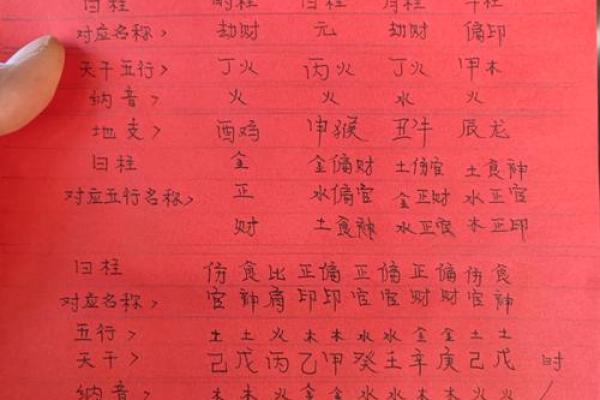 日柱 时柱 日柱 月柱 年柱
对应名称> 劫财 元 劫财 偏印
天干五行> 丁火 丙火 丁火 甲木
纳音> 火 火 水 火
地支> 酉鸡 申猴 丑牛 辰龙
日柱 金 金偏财 土伤官 土食神
对应五行名称> 正 水偏官 金正财 水正官
财 土食神 水正官 木正印
日柱 伤食比正偏正偏正偏伤食
对应名称> 官神肩印印官官财财官神
五行> 土土火木木水水金金土土
天干> 己戊丙乙甲癸壬辛庚己戊 时
纳音> 木木火金金水水木木火火